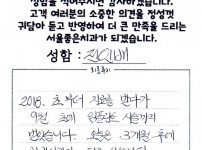 성함을 적어주시면 감사하겠습니다.
고객 여러분의 소중한 의견을 정성껏
귀담아 듣고 반영하여 더 큰 만족을 드리는
서울좋은치과가 되겠습니다.
성함 :
2018. 초부터 치료를 받다가
9월 초에 임플란트 시술까지
받았습니다 오늘은 3개월 후에